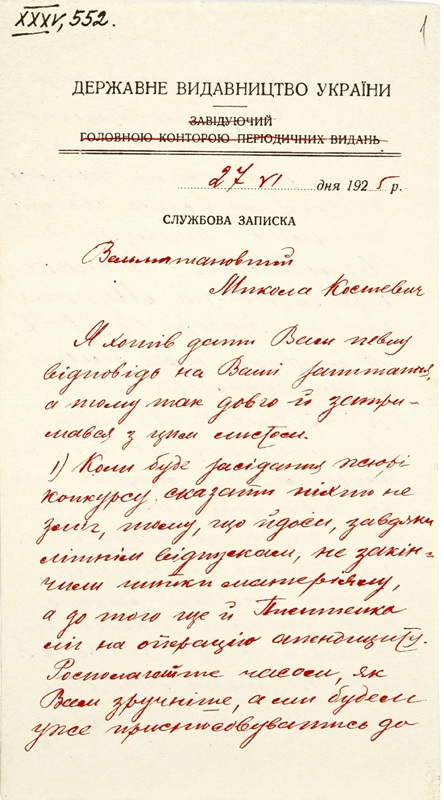 XXXV, 552.
1
ДЕРЖАВНЕ ВИДАВНИЦТВО УКРАЇНИ
ЗАВІДУЮЧИЙ
ГОЛОВНОЮ КОНТОРОЮ ПЕРІОДИЧНИХ ВИДАНЬ
27 VI дня 1925 р.
СЛУЖБОВА ЗАПИСКА
Вельмишановний
Микола Костевич
Я хотів дати Вам певну
відповідь на Ваші запитання,
а тому так довго й затри-
мався з цим листом.
1) Коли буде засідання жюрі
конкурсу сказати ніхто не
зміг, тому, що й досі, завдяки
літнім відпускам, не закін-
чили читки матеріялу,
а до того ще й Пилипенко
ліг на операцію апендициту.
Росполагайте часом, як
Вам зручніше, а ми будем
уже приспосовуватись до